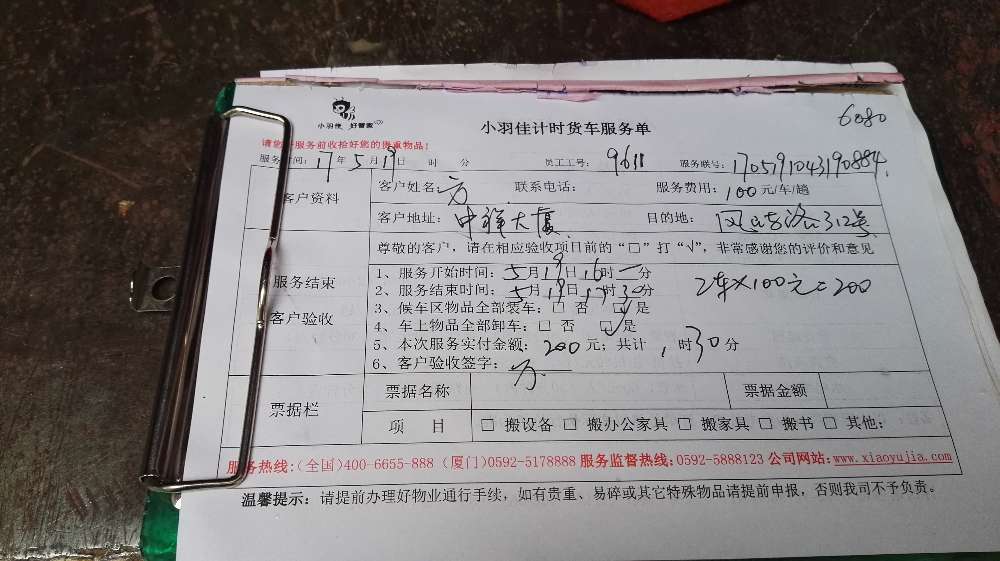 小羽佳 好管家
小羽佳计时货车服务单
6080
请您在服务前收拾好您的贵重物品!
服务时间: 17年5月19日 时 分 员工工号: 9611 服务联号: 1705191043190884
客户资料
客户姓名: 方 联系电话: 服务费用: 100元/车/趟
客户地址: 中祥大厦 目的地: 312号
尊敬的客户,请在相应验收项目前的“□”打“√”,非常感谢您的评价和意见
服务结束
客户验收
1、服务开始时间: 5月19日16时一分
2、服务结束时间: 5月19日17时30分
2车×100元=200
3、候车区物品全部装车: □ 否 ☑是
4、车上物品全部卸车: □ 否 ☑是
5、本次服务实付金额: 200元; 共计 1时30分
6、客户验收签字: 方
票据栏
票据名称 票据金额
项 目 □ 搬设备 □ 搬办公家具 □ 搬家具 □ 搬书 □ 其他:
服务热线:(全国)400-6655-888 (厦门)0592-5178888 服务监督热线:0592-5888123 公司网站:www.xiaoyujia.com
温馨提示: 请提前办理好物业通行手续,如有贵重、易碎或其它特殊物品请提前申报,否则我司不予负责。